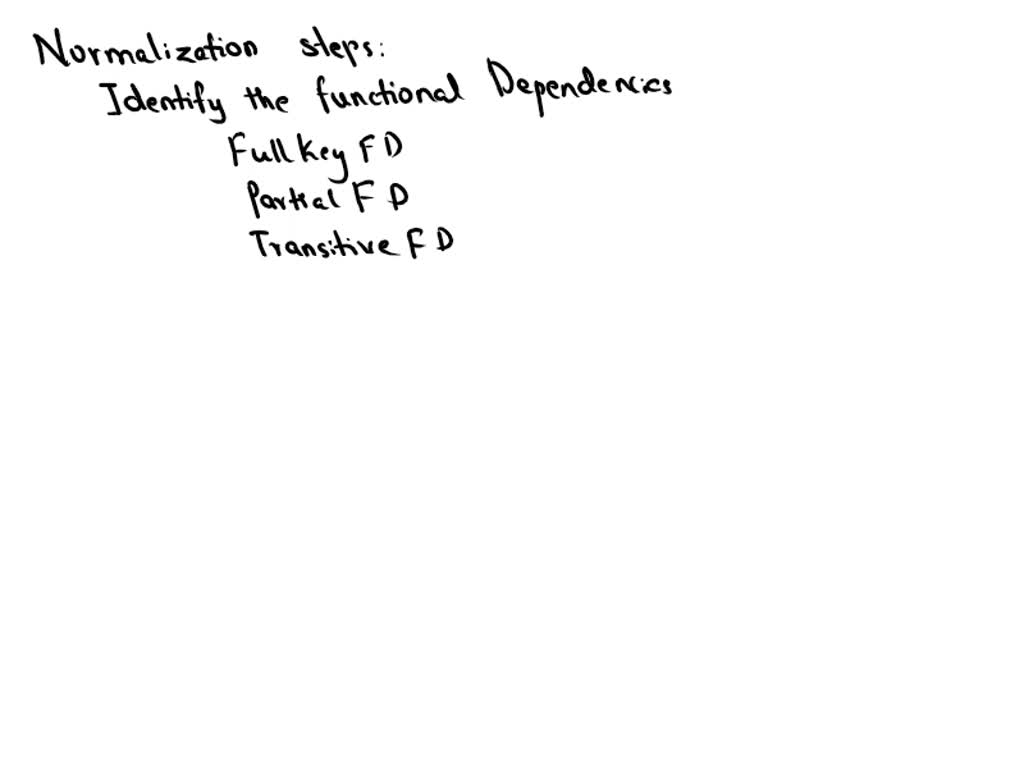 Normalization steps:
Identify the functional Dependencies
Full Key FD
Partial FD
Transitive FD